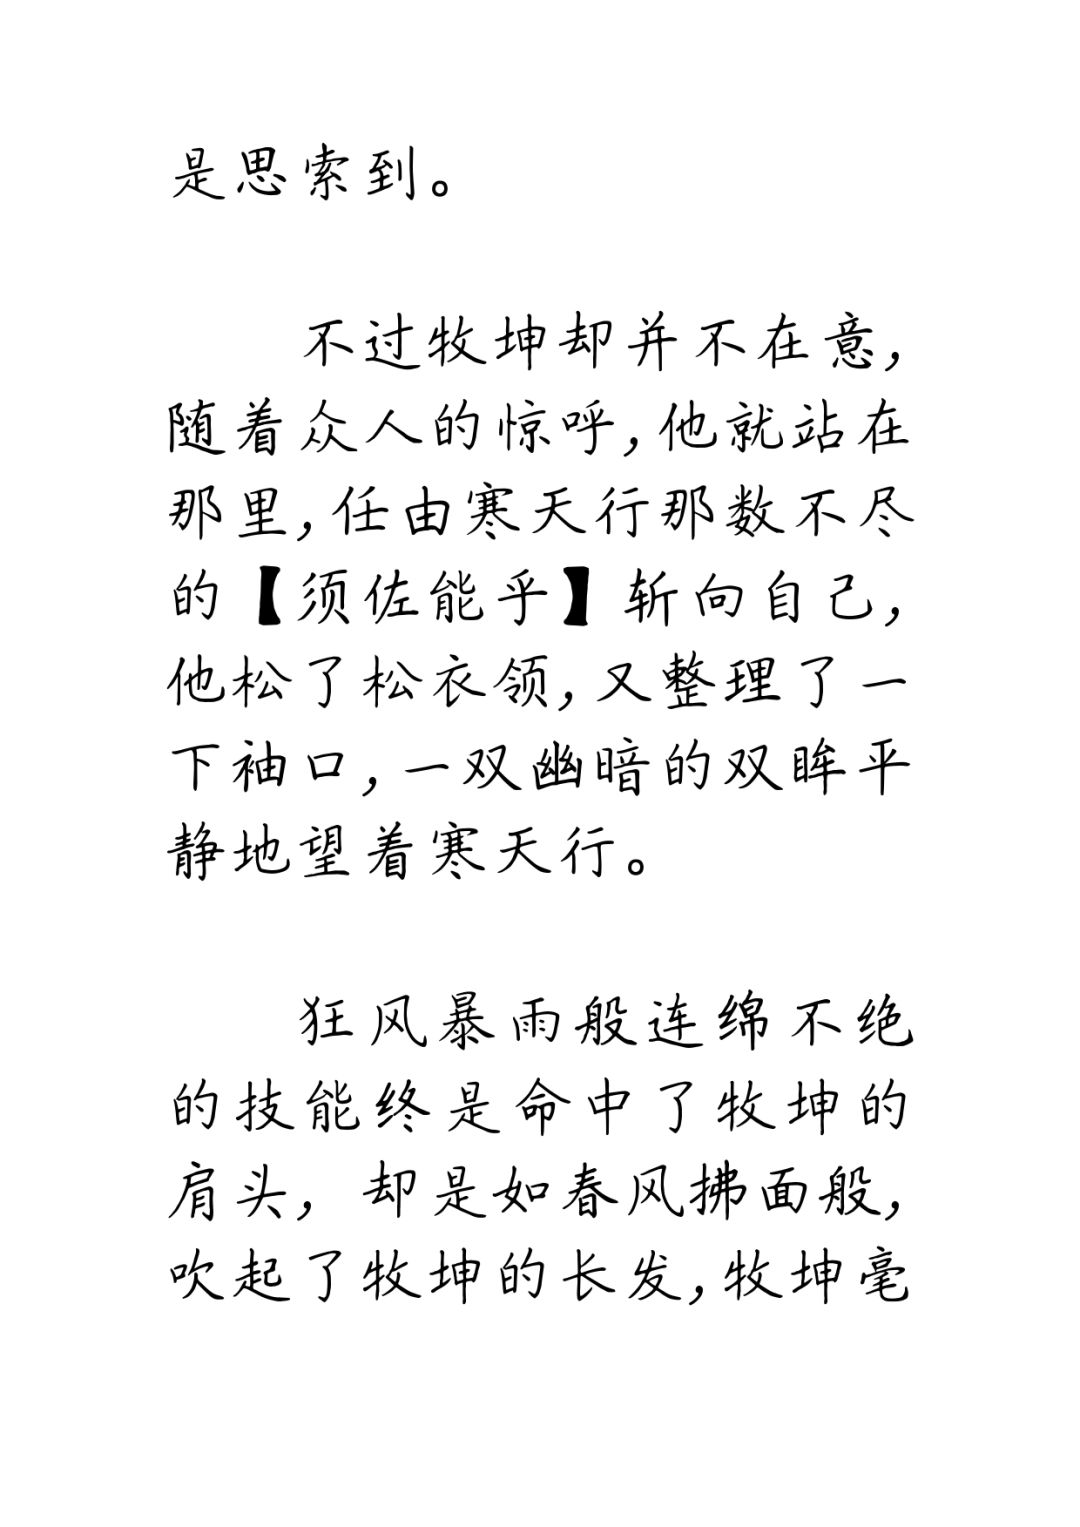 是思索到。
不过牧坤却并不在意，
随着众人的惊呼，他就站在
那里，任由寒天行那数不尽
的【须佐能乎】斩向自己，
他松了松衣领，又整理了一
下袖口，一双幽暗的双眸平
静地望着寒天行。
狂风暴雨般连绵不绝
的技能终是命中了牧坤的
肩头，却是如春风拂面般，
吹起了牧坤的长发，牧坤毫